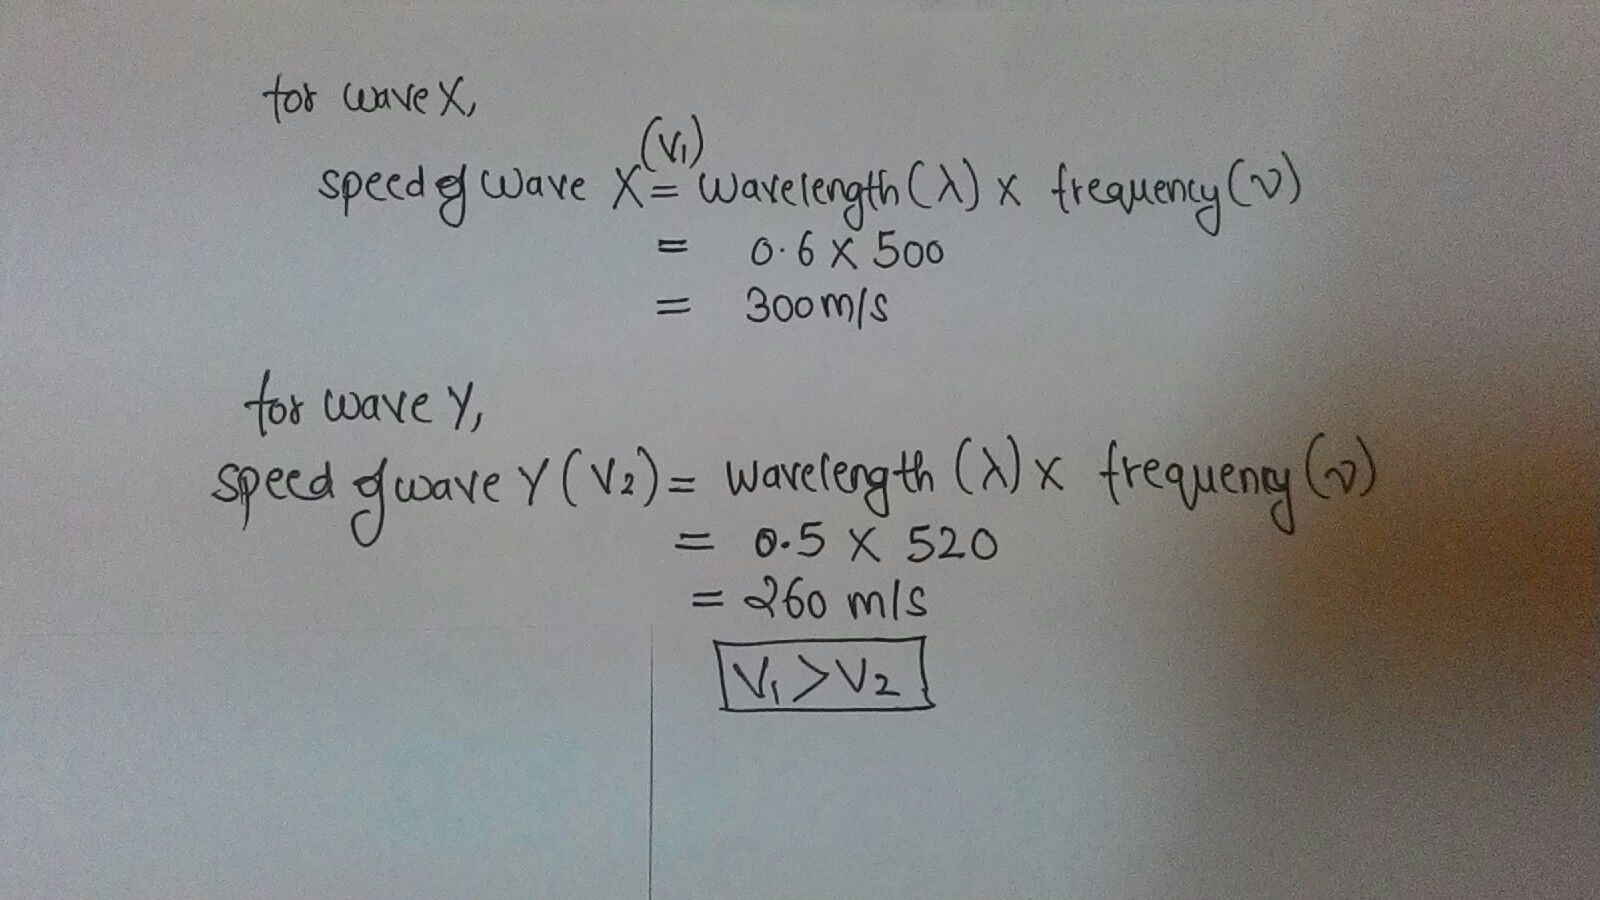 for wave X,
speed of wave X (V₁) = wavelength (λ) x frequency (ν)
= 0.6 x 500
= 300 m/s
for wave Y,
speed of wave Y (V₂) = wavelength (λ) x frequency (ν)
= 0.5 x 520
= 260 m/s
V₁ > V₂